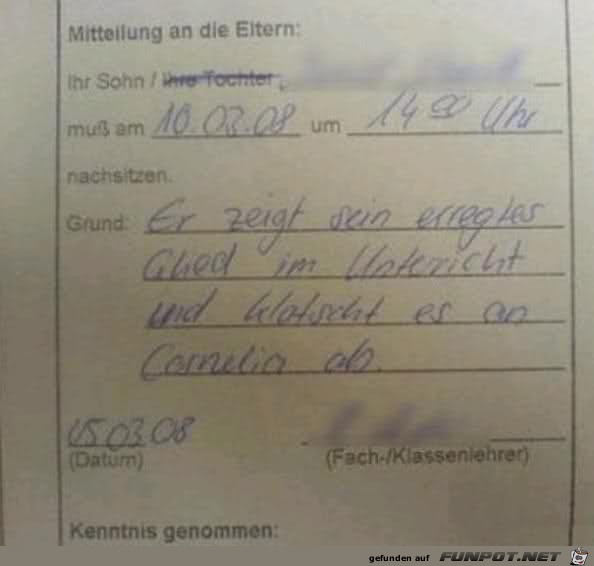 Mitteilung an die Eltern:
Ihr Sohn / Ihre Tochter,
muß am 10.03.08 um 14 00 Uhr
nachsitzen.
Grund: Er zeigt sein erregtes
Glied im Unterricht
und klatscht es an
Cornelia ab.
05.03.08
(Datum) (Fach-/Klassenlehrer)
Kenntnis genommen:
gefunden auf FUNPOT.NET